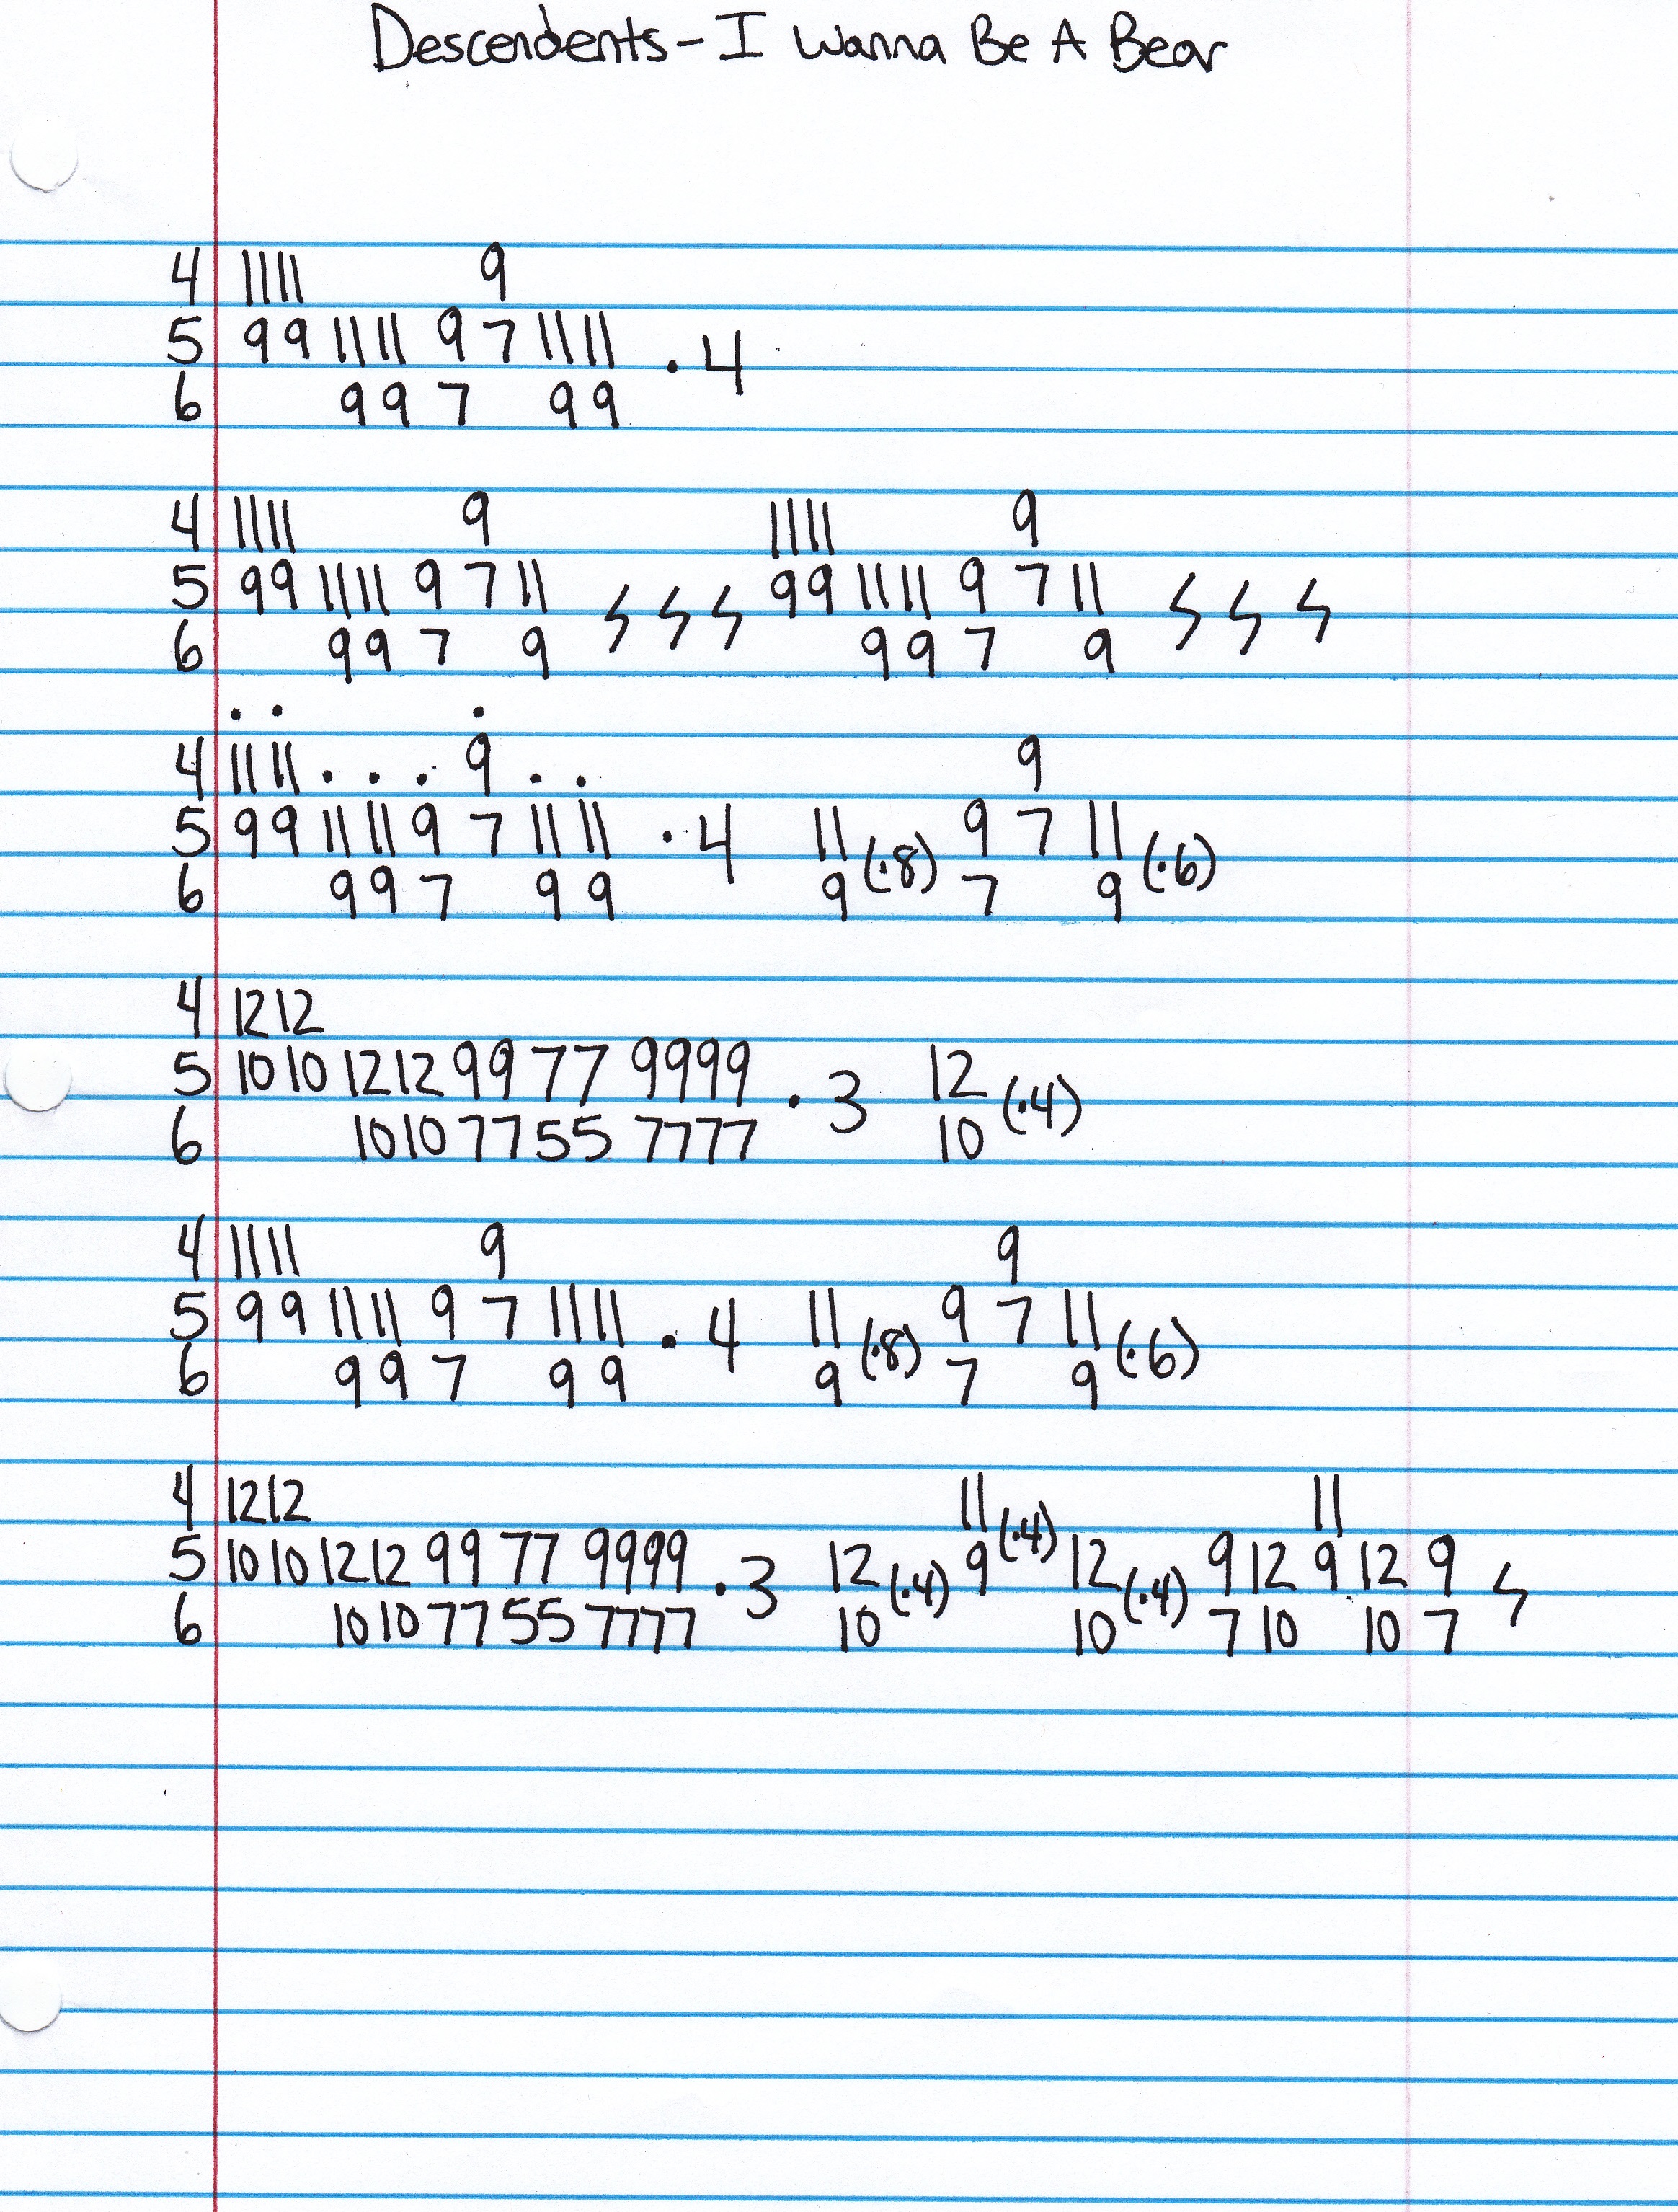 Descendents - I Wanna Be A Bear
4 11 11 9
5 9 9 11 11 9 7 11 11 · 4
6 9 9 7 9 9
4 11 11 9 11 11 9
5 9 9 11 11 9 7 11 𝄽 𝄽 𝄽 9 9 11 11 9 7 11 𝄽 𝄽 𝄽
6 9 9 7 9 9 9 7 9
. . .
4 11 11 . . . 9 . . 9
5 9 9 11 11 9 7 11 11 · 4 11 (·8) 9 7 11 (·6)
6 9 9 7 9 9 9 7 9
4 12 12
5 10 10 12 12 9 9 7 7 9 9 9 9 · 3 12 (·4)
6 10 10 7 7 5 5 7 7 7 7 10
4 11 11 9 9
5 9 9 11 11 9 7 11 11 · 4 11 (·8) 9 7 11 (·6)
6 9 9 7 9 9 9 7 9
4 12 12 11 (·4) 11
5 10 10 12 12 9 9 7 7 9 9 9 9 · 3 12 (·4) 9 12 (·4) 9 12 9 12 9 𝄽
6 10 10 7 7 5 5 7 7 7 7 10 10 7 10 10 7